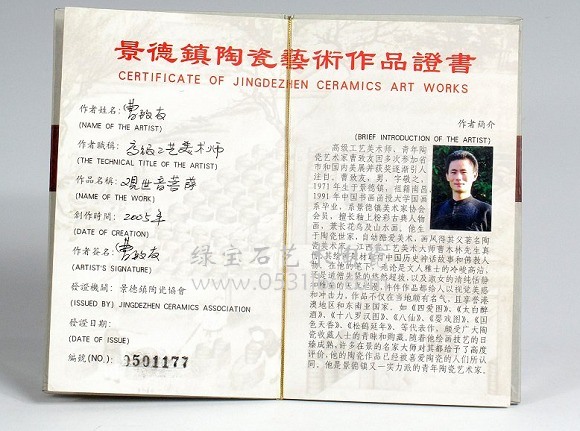 景德鎮陶瓷藝術作品證書
CERTIFICATE OF JINGDEZHEN CERAMICS ART WORKS
作者姓名: 曹致友
(NAME OF THE ARTIST)
作者職稱: 高级工艺美术师
(THE TECHNICAL TITLE OF THE ARTIST)
作品名稱: 观世音菩萨
(NAME OF THE WORK)
創作時間: 2005年
(DATE OF CREATION)
作者簽名: 曹致友
(ARTIST'S SIGNATURE)
發證機關: 景德鎮陶瓷協會
(ISSUED BY) JINGDEZHEN CERAMICS ASSOCIATION
發證日期:
(DATE OF ISSUE)
編號(NO.): 0501177
作者简介
(BRIEF INTRODUCTION OF THE ARTIST)
高级工艺美术师，青年
陶瓷艺术家曹致友因多次参加省
市和国内美展并获奖逐渐引人
注目。曹致友，男，字敬之，
1971年生于景德镇，祖籍南昌
1991年中国书画函授大学国画
系毕业，系景德镇美术家协会
会员，擅长釉上粉彩古典人物
画，兼长花鸟及山水画。他生
于陶瓷世家，自幼酷爱美术，画风得其父著名陶
瓷美术家、江西省工艺美术大师曹木林先生真
中国历史神话故事和佛教人
物，在他的笔下，无论是文人雅士的冷峻高洁，
以及淑女的清纯恬静
件件作品都给人以视觉美感
和冲击力。作品不仅在当地颇有名气，且享誉港
澳地区和东南亚国家。如《四爱图》、《太白醉
酒》、《十八罗汉图》、《八仙》、《婴戏图》、《国
色天香》、《松鹤延年》、等代表作，颇受广大陶
瓷收藏人士的青睐和购藏。随着他绘画技艺的日
臻成熟，许多在景的名家大师对其都给予了高度
评价，他的陶瓷作品已经被喜爱陶瓷的人们所认
同。他是景德镇又一实力派的青年陶瓷艺术家。
绿宝石艺术